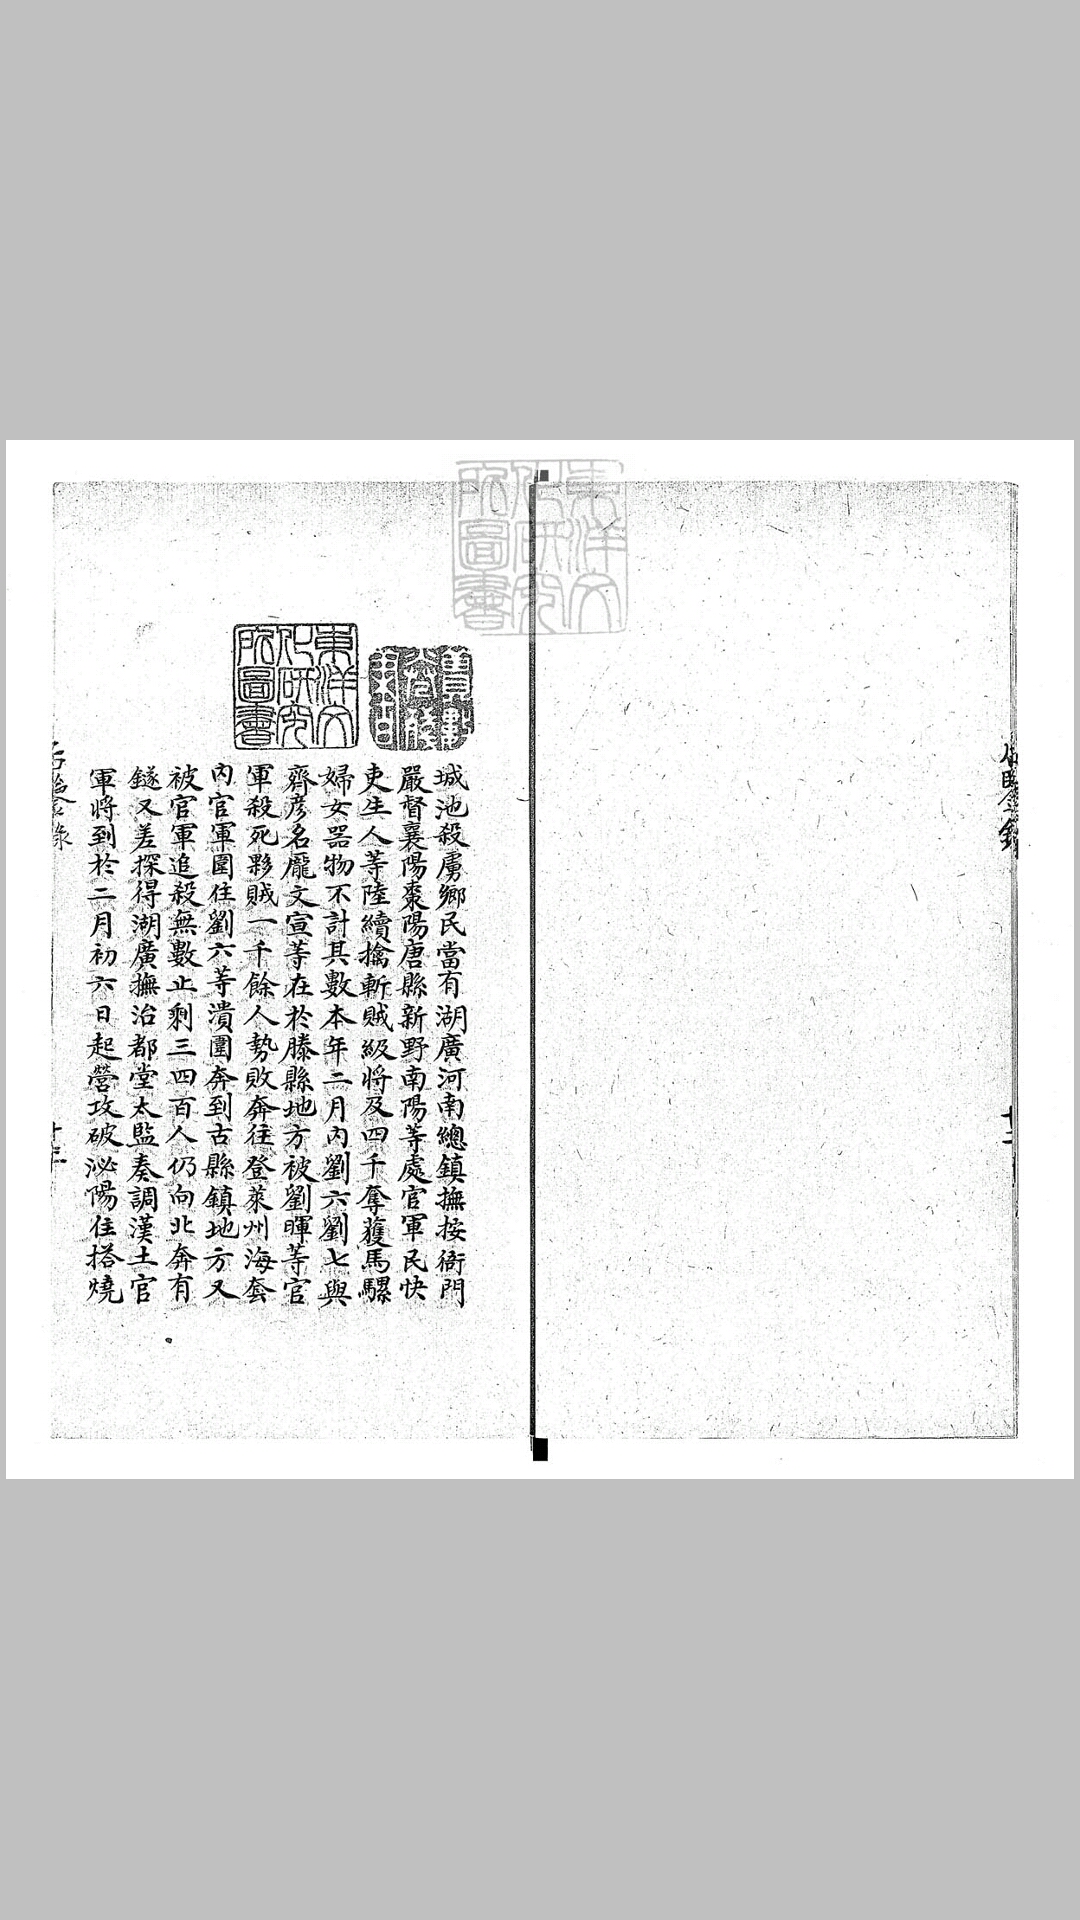 城池殺虜鄉民當有湖廣河南總鎮撫按衙門
嚴督襄陽棗陽唐縣新野南陽等處官軍民快
吏生人等陸續擒斬賊級將及四千奪獲馬騾
婦女器物不計其數本年二月內劉六劉七與
齊彥名龐文宣等在於滕縣地方被劉暉等官
軍殺死夥賊一千餘人勢敗奔往登萊州海套
內官軍圍住劉六等潰圍奔到古縣鎮地方又
被官軍追殺無數止剩三四百人仍向北奔有
鐩又差探得湖廣撫治都堂太監奏調漢土官
軍將到於二月初六日起營攻破泌陽住搭燒
東洋文
化研究
所圖書
東洋文
化研究
所圖書